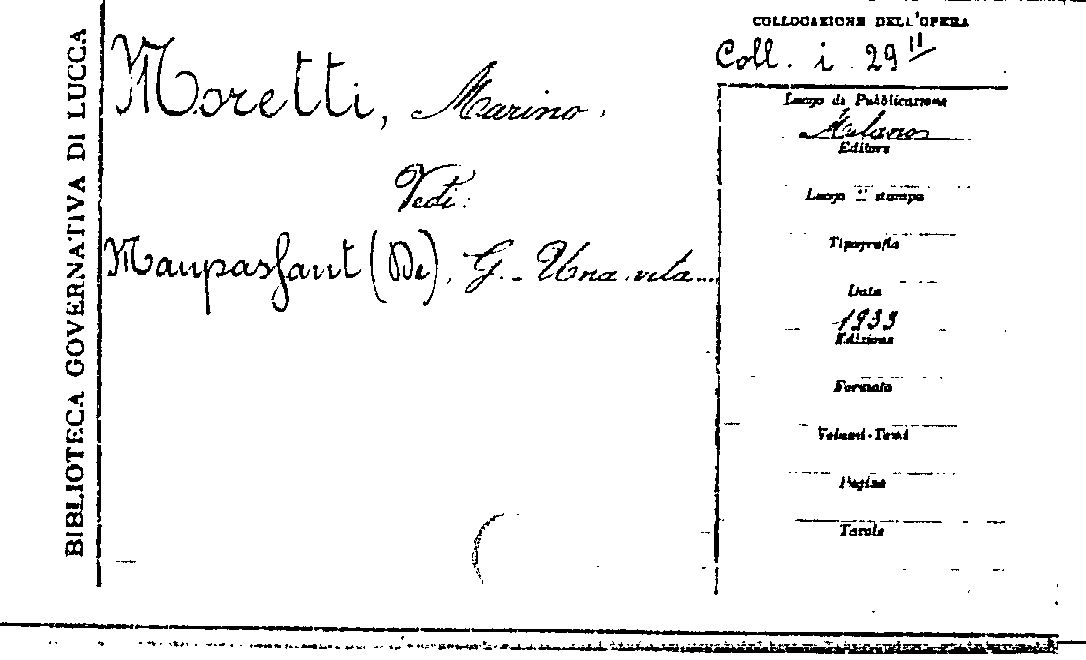 BIBLIOTECA GOVERNATIVA DI LUCCA
COLLOCAZIONE DELL'OPERA
Coll. i. 29 II
Moretti, Marino.
Vedi:
Maupassant (De), G. - Una vita...
Luogo di Pubblicazione
Milano
Editore
Luogo di stampa
Tipografia
Data
1933
Edizione
Formato
Volumi-Tomi
Pagine
Tavole